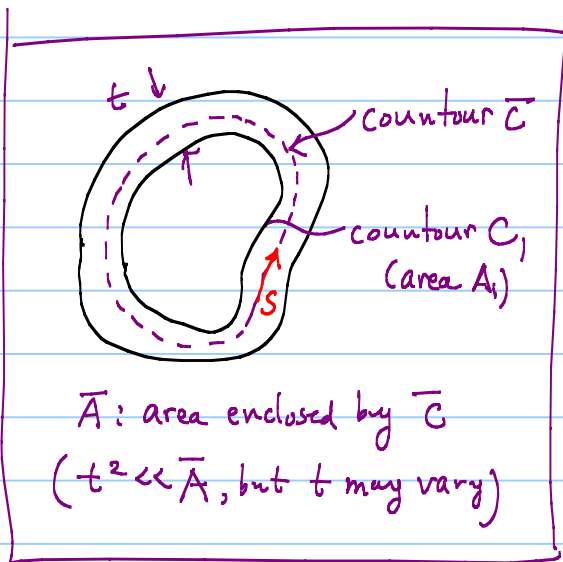 t
countour C̅
countour C₁
(area A₁)
S
A̅: area enclosed by C̅
(t² << A̅, but t may vary)